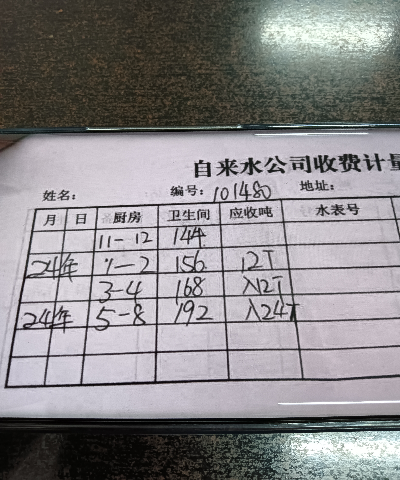 自来水公司收费计量
姓名： 编号：101480 地址：
月 日 厨房 卫生间 应收吨 水表号
11-12 144
24年 1-2 156 12T
3-4 168 入12T
24年 5-8 192 入24T